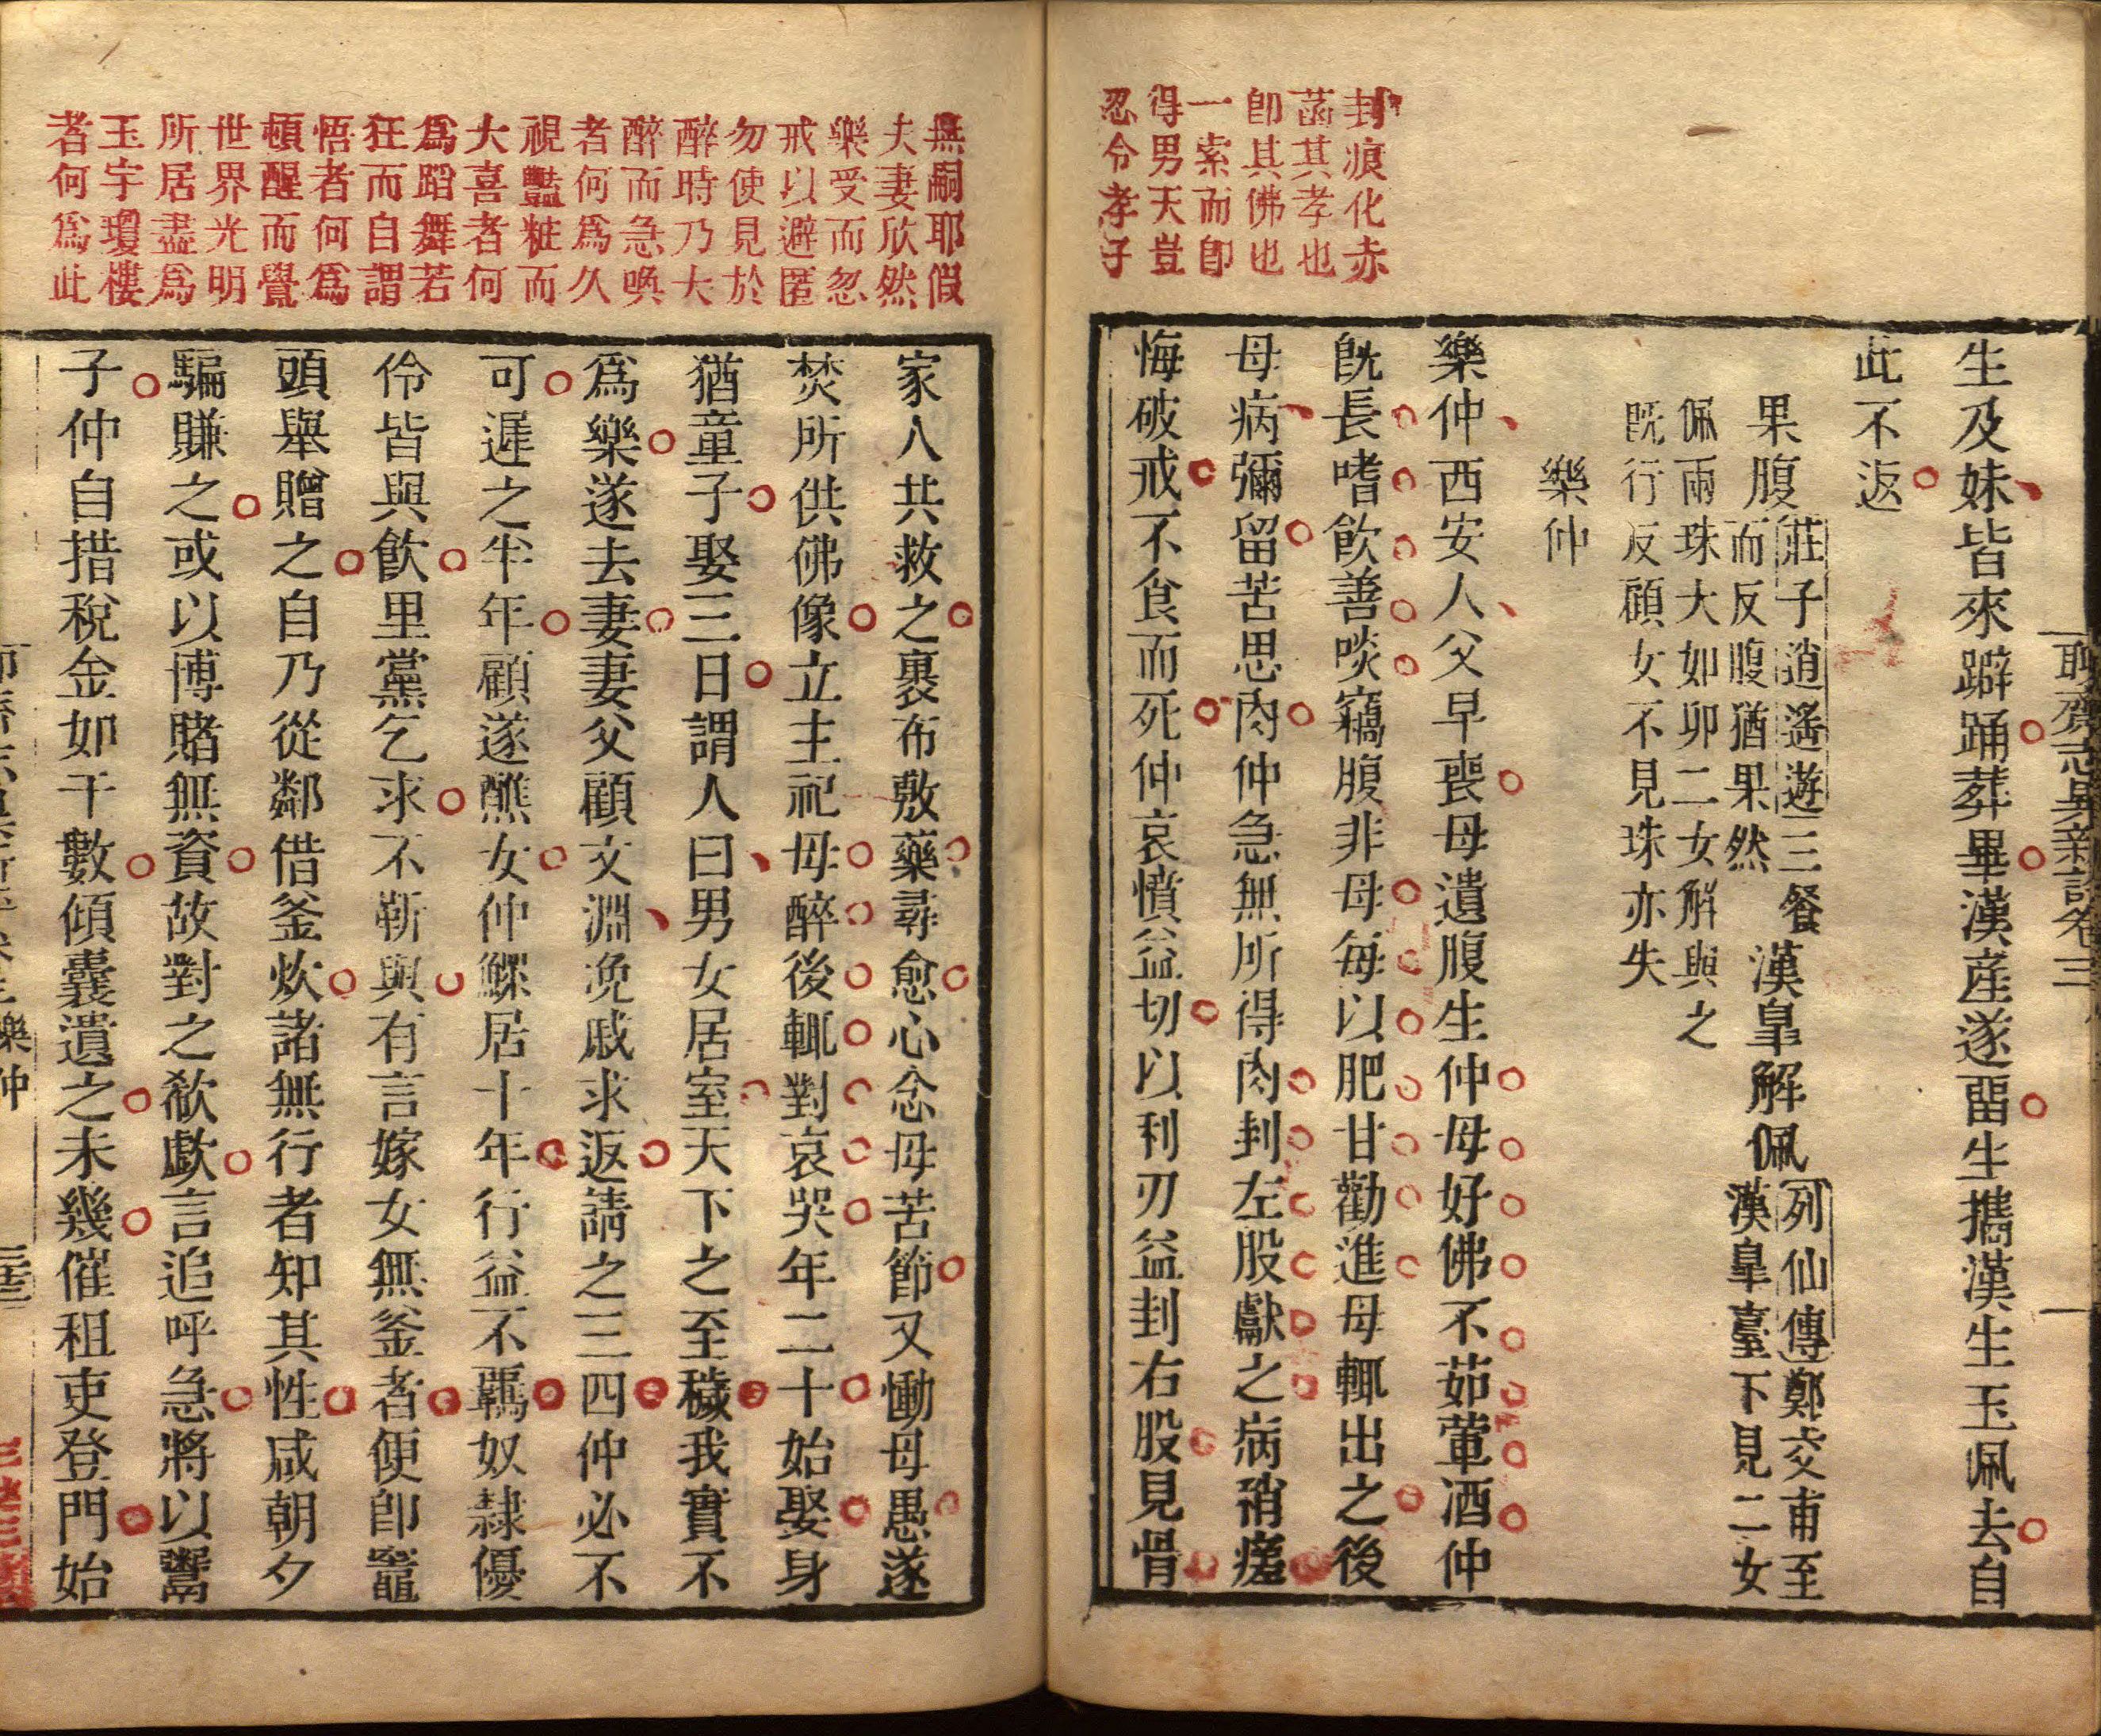 聊齋志異新評卷三
封痕化赤
菡其孝也
卽其佛也
一索而卽
得男天豈
忍令孝子
生及妹皆來躃踊葬畢漢産遂畱生攜漢生玉佩去自
此不返
果腹
莊子逍遙遊三餐
而反腹猶果然
漢皐解佩
列仙傳鄭交甫至
漢皐臺下見二女
佩兩珠大如卵二女解與之
旣行反顧女不見珠亦失
樂仲
樂仲西安人父早喪母遺腹生仲母好佛不茹葷酒仲
旣長嗜飮善啖竊腹非母每以肥甘勸進母輒出之後
母病彌留苦思肉仲急無所得肉刲左股獻之病稍瘥
悔破戒不食而死仲哀憤益切以利刃益刲右股見骨
無嗣耶假
夫妻欣然
樂受而忽
戒以避匿
勿使見於
醉時乃大
醉而急喚
者何爲久
視豔粧而
大喜者何
爲蹈舞若
狂而自謂
悟者何爲
頓醒而覺
世界光明
所居盡爲
玉宇瓊樓
者何爲此
家人共救之裹布敷藥尋愈心念母苦節又慟母愚遂
焚所供佛像立主祀母醉後輒對哀哭年二十始娶身
猶童子娶三日謂人曰男女居室天下之至穢我實不
爲樂遂去妻妻父顧文淵浼戚求返請之三四仲必不
可遲之半年顧遂醮女仲鰥居十年行益不羈奴隸優
伶皆與飮里黨乞求不靳與有言嫁女無釜者便卽竈
頭舉贈之自乃從鄰借釜炊諸無行者知其性咸朝夕
騙賺之或以博賭無資故對之欷歔言追呼急將以鬻
子仲自措稅金如干數傾囊遺之未幾催租吏登門始
樂仲